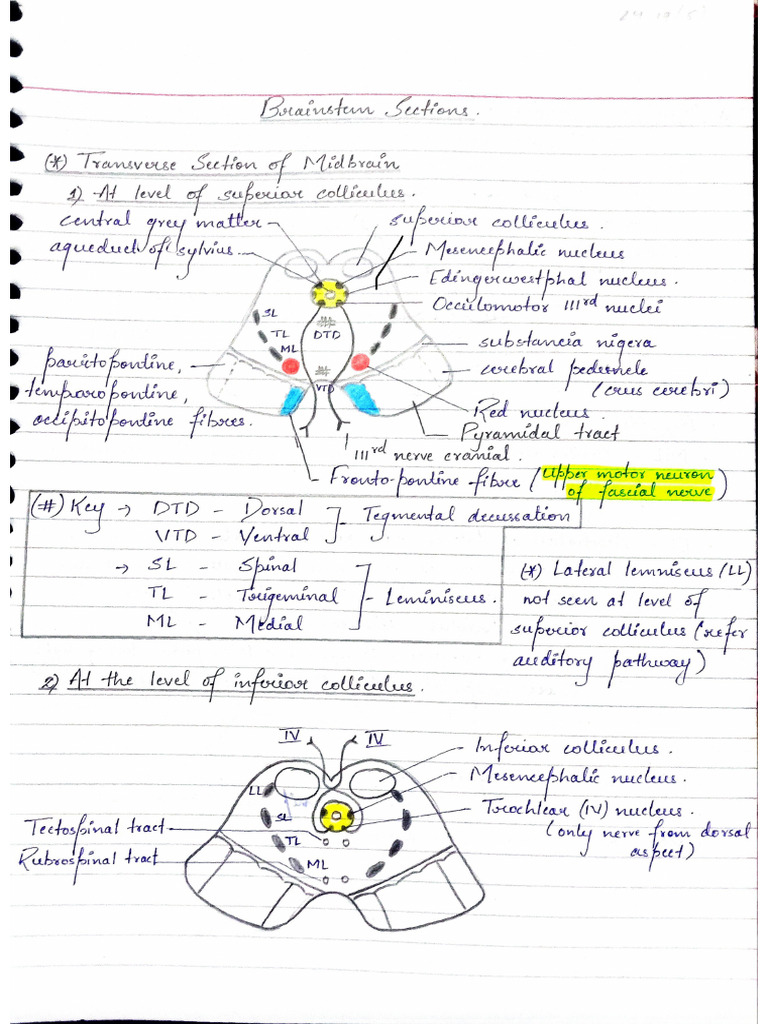 Brainstem Sections.
(*) Transverse Section of Midbrain
1) At level of superior colliculus.
central grey matter
aqueduct of sylvius
superior colliculus.
Mesencephalic nucleus
Edingerwestphal nucleus.
Occulomotor IIIrd nuclei
SL
TL
ML
DTD
VTD
substancia nigera
cerebral pedensele
(crus cerebri)
Red nucleus.
Pyramidal tract
IIIrd nerve cranial.
paritopontine,
temparopontine,
occipitopontine fibres.
Fronto-pontine fibre (upper motor neuron
of fascial nerve)
(#) Key → DTD - Dorsal
VTD - Ventral
Tegmental decussation
→ SL - Spinal
TL - Trigeminal
ML - Medial
Leminiscus.
(*) Lateral lemniscus (LL)
not seen at level of
superior colliculus (refer
auditory pathway)
2) At the level of inferior colliculus.
IV IV
Inferior colliculus.
Mesencephalic nucleus.
Trochlear (IV) nucleus.
(only nerve from dorsal
aspect)
LL
SL
TL
ML
Tectospinal tract
Rubrospinal tract